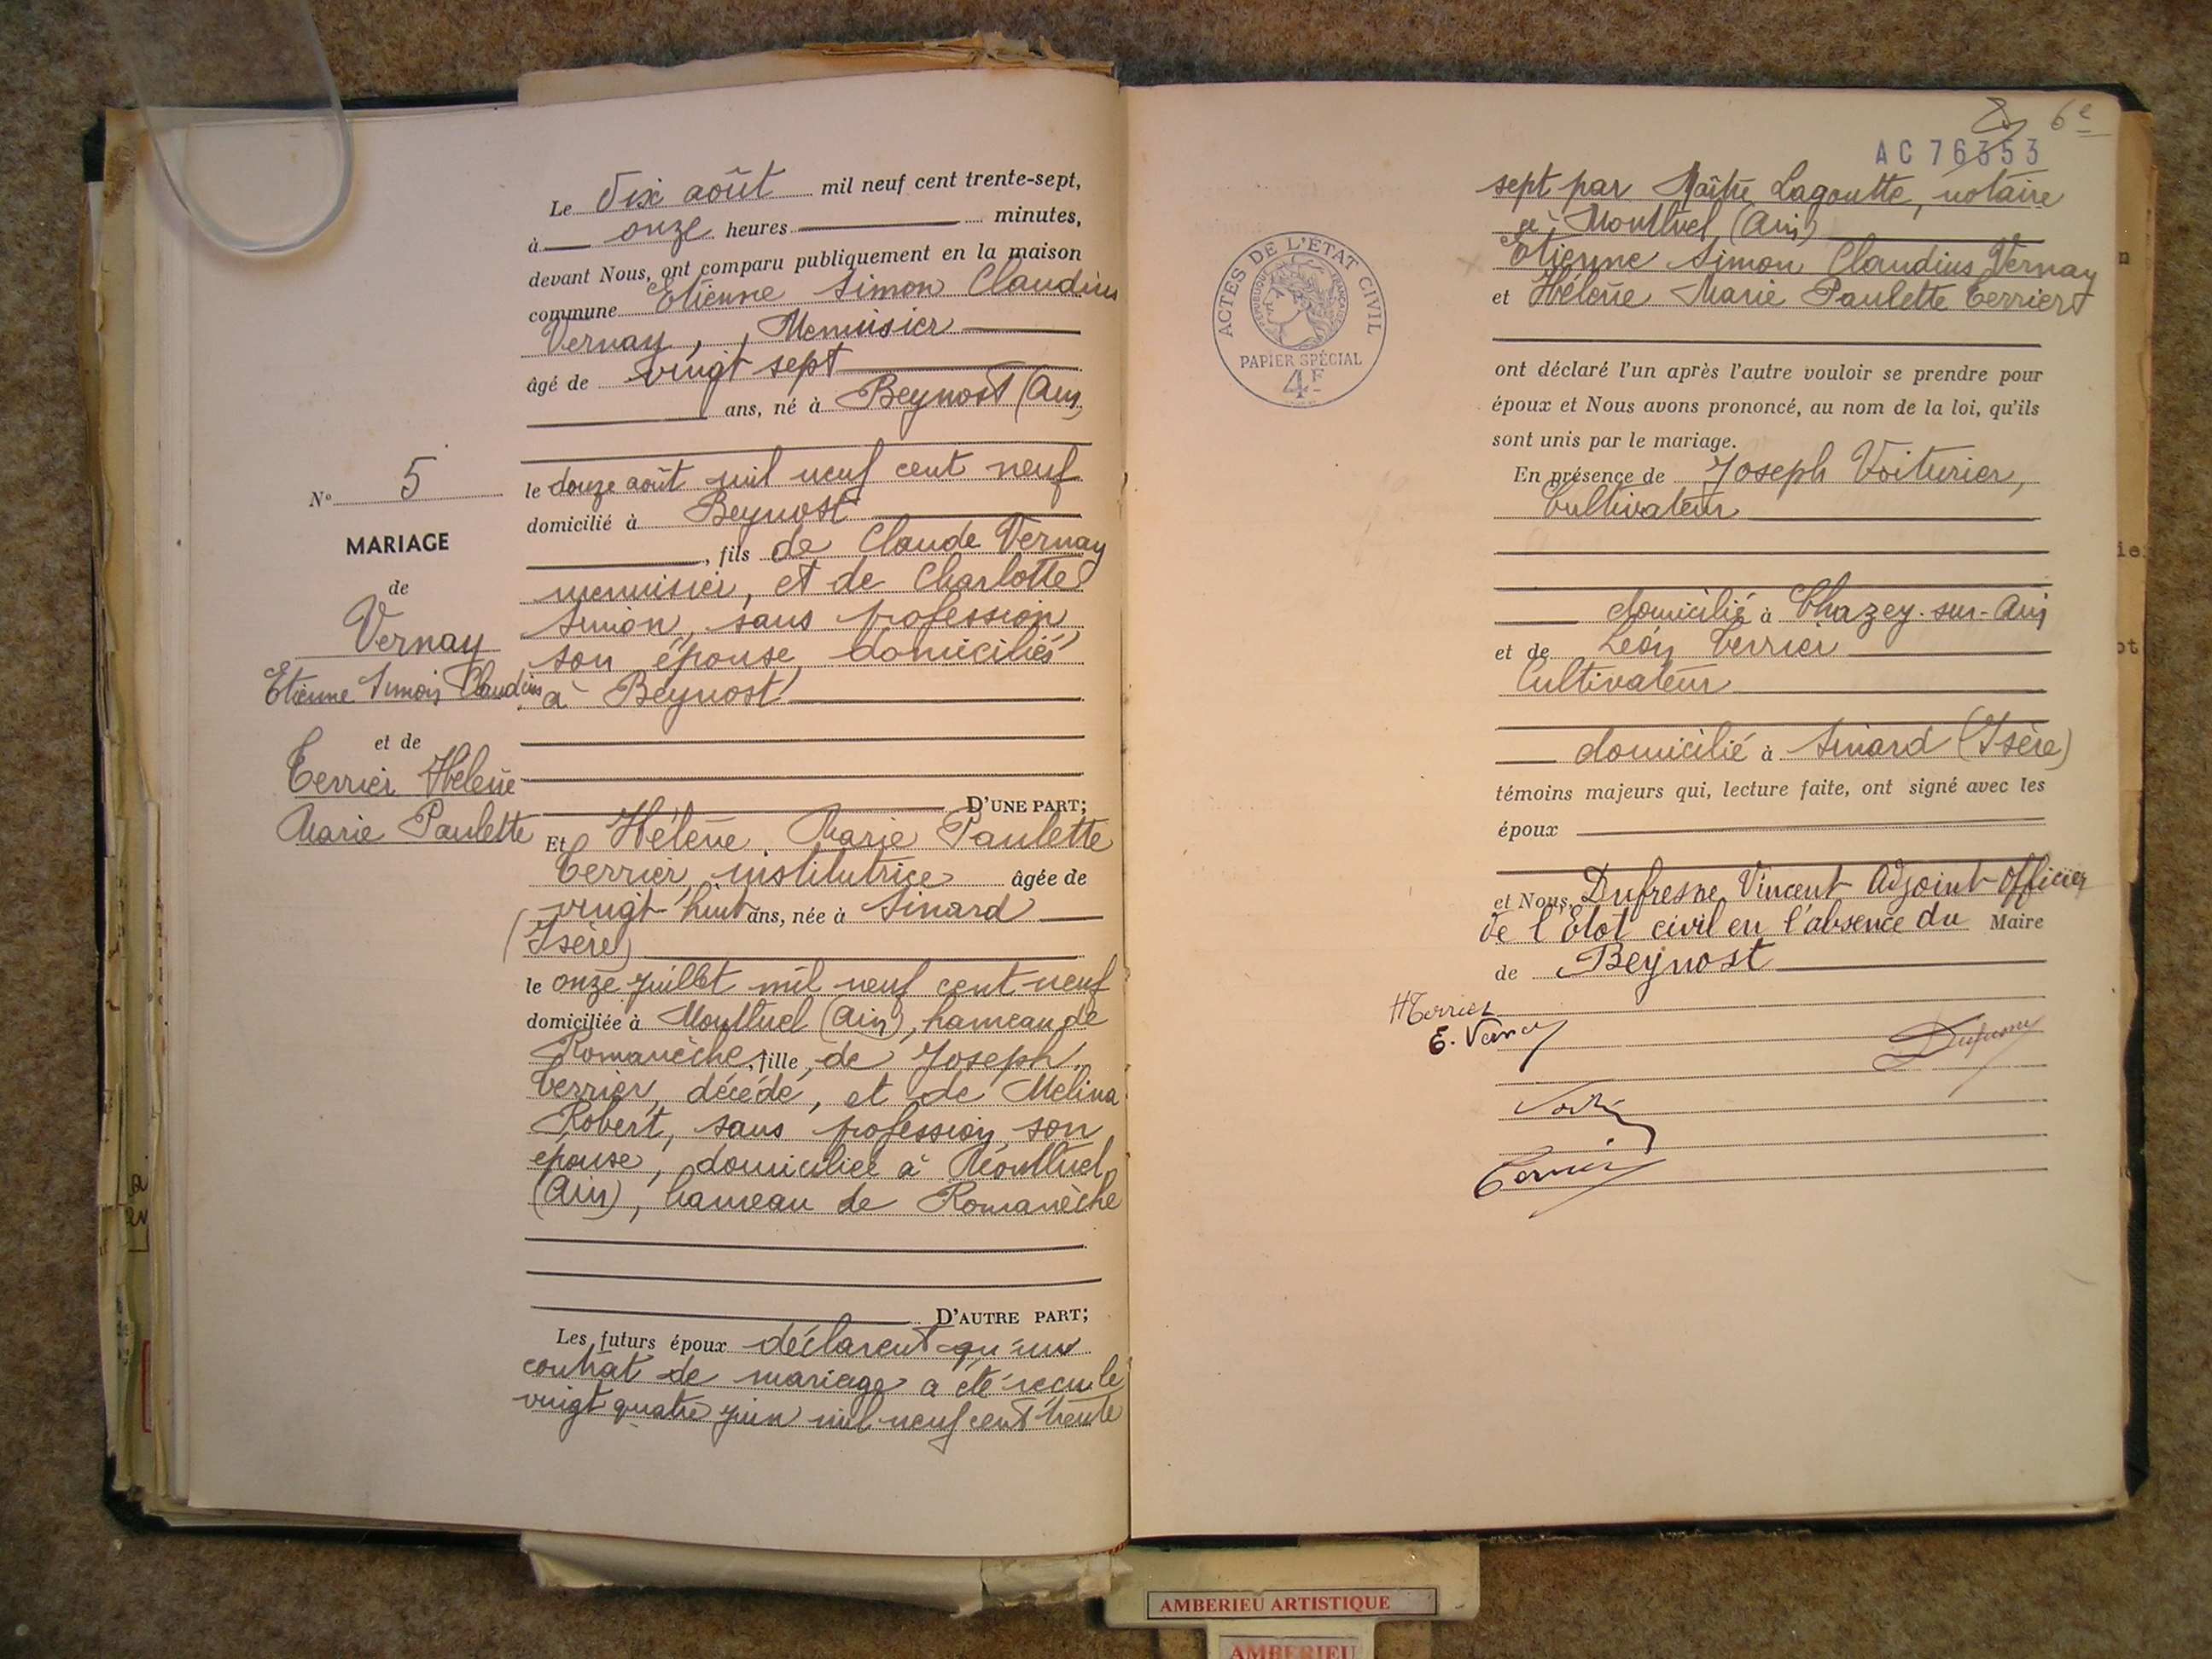 Le Dix août mil neuf cent trente-sept,
à onze heures minutes,
devant Nous, ont comparu publiquement en la maison
commune Etienne Simon Claudius
Vernay, Menuisier
âgé de vingt sept
ans, né à Beynost (Ain)
le douze août mil neuf cent neuf
domicilié à Beynost
, fils de Claude Vernay
menuisier, et de Charlotte
Simon, sans profession
son épouse, domiciliés
à Beynost
D'UNE PART;
Et Hélène, Marie Paulette
Terrier, institutrice âgée de
vingt-huit ans, née à Sinard
(Isère)
le onze juillet mil neuf cent neuf
domiciliée à Montluel (Ain), hameau de
Romanèche, fille de Joseph
Terrier, décédé, et de Melina
Robert, sans profession, son
épouse, domiciliée à Montluel
(Ain), hameau de Romanèche
D'AUTRE PART;
Les futurs époux déclarent qu'un
contrat de mariage a été reçu le
vingt quatre juin mil neuf cent trente
N° 5
MARIAGE
de
Vernay
Etienne Simon Claudius
et de
Terrier Hélène
Marie Paulette
6e
AC 76353
sept par Maître Lagoutte, notaire
à Montluel (Ain)
Etienne Simon Claudius Vernay
et Hélène Marie Paulette Terrier
ont déclaré l'un après l'autre vouloir se prendre pour
époux et Nous avons prononcé, au nom de la loi, qu'ils
sont unis par le mariage.
En présence de Joseph Voiturier,
Cultivateur
domicilié à Chazey-sur-Ain
et de Léon Terrier
Cultivateur
domicilié à Sinard (Isère)
témoins majeurs qui, lecture faite, ont signé avec les
époux
et Nous, Dufresne Vincent Adjoint officier
de l'Etat civil en l'absence du Maire
de Beynost
HTerrier
E. Vernay
Dufresne
Terrier
ACTES DE L'ÉTAT CIVIL
RÉPUBLIQUE FRANÇAISE
PAPIER SPÉCIAL
4F
AMBERIEU ARTISTIQUE
AMBERIEU